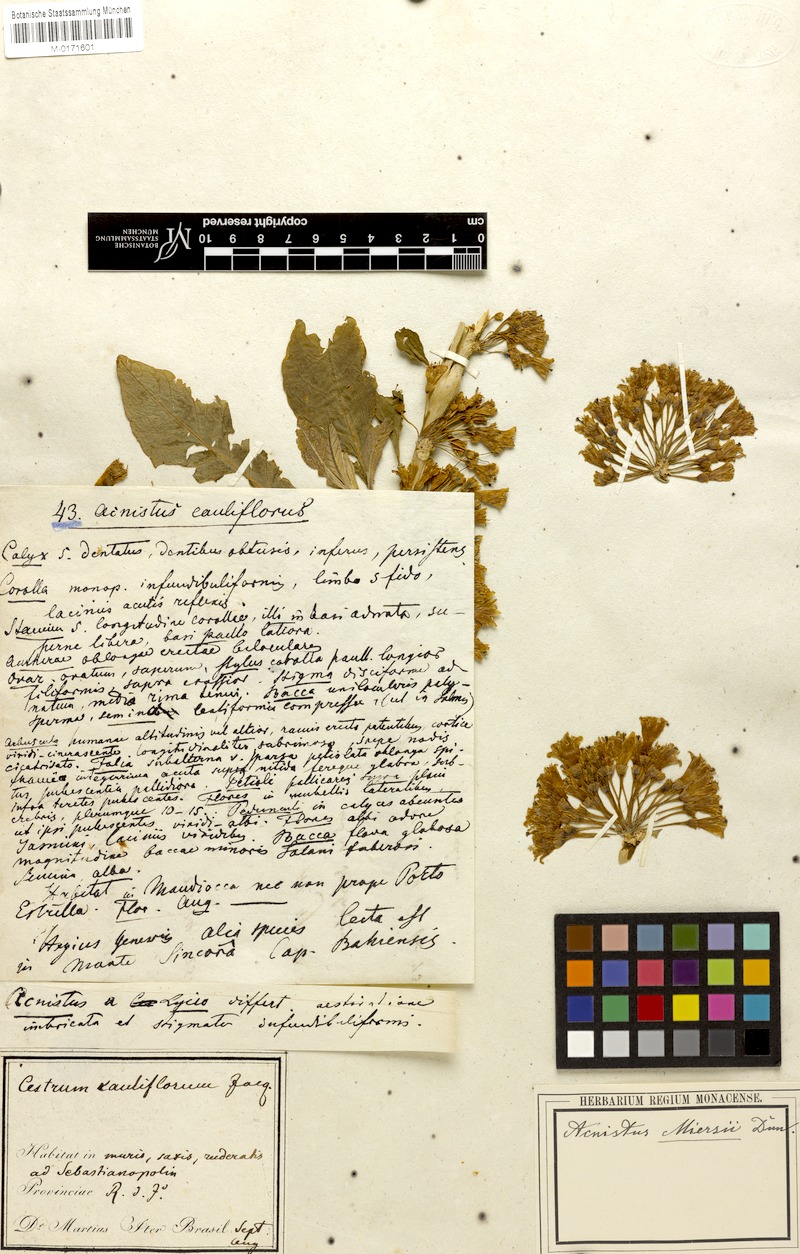 Botanische Staatssammlung München
M-0171601
cm
copyright reserved
0 1 2 3 4 5 6 7 8 9 10
M
BOTANISCHE
STAATSSAMMLUNG
MÜNCHEN
43. Acnistus cauliflorus
Calyx 5. dentatus, dentibus obtusis, inferus, persistens
Corolla monop. infundibuliformis, limbo 5 fido,
laciniis acutis reflexis.
Stamina 5. longitudine corollae, illi in basi adnata, su-
perne libera, basi paullo latiora.
Antherae oblongae erectae biloculares
Ovar. ovatum, superum, stylus corolla paull. longior
filiformis supra crassior. Stigma disciforme ad
natum, media rima tenui. Bacca unilocularis poly-
sperma, semina leatiformia compressa, (ut in
Arbuscula humanae altitudinis vel altior, ramis erecto patentibus, cortice
viridi-cinerascente longitudinaliter subrimoso, saepe nodis
cicatrisato. Folia subalterna v. sparsa petiolata oblonga
integerrima acuta supra nitida fereque glabra, sub-
tus pubescentia pallidiora. Petioli pollicares supra plani
infra teretes pubescentes. Flores in umbellis lateralibus,
crebris, plerumque 10-15. Pedunculi in calyces abeuntes
ut ipsi pubescentes viridi-albi. Flores albi odore
Jasmini, laciniis viridibus. Bacca flava globosa
magnitudine baccae minoris Solani tuberosi.
Semina alba.
Habitat in Mandiocca nec non prope Porto
Estrella. Flor. Aug.
Hujus generis alia species lecta est
in Monte Sincorà Cap. Bahiensis.
Acnistus a Lycio differt aestivatione
imbricata et stigmate infundibuliformi.
Cestrum cauliflorum Jacq.
Habitat in muris, saxis, ruderatis
ad Sebastianopolin
Provinciae R. d. Jº
Dr. Martius Iter Brasil Sept.
Aug
HERBARIUM REGIUM MONACENSE.
Acnistus Miersii Dun.